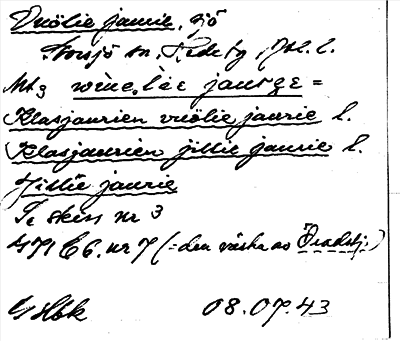 Vuölie jaurie, sjö
Storsjö sn, Rede tg, Jtl. l.
Mt3 wùe.lèe jaurge =
Klasjaurien vuölie jaurie l.
Klasjaurien jillie jaurie l.
Jillie jaurie
Se skiss nr 3
471 C6. nr 7 (= den västra av Öradstj.)
08.07.43